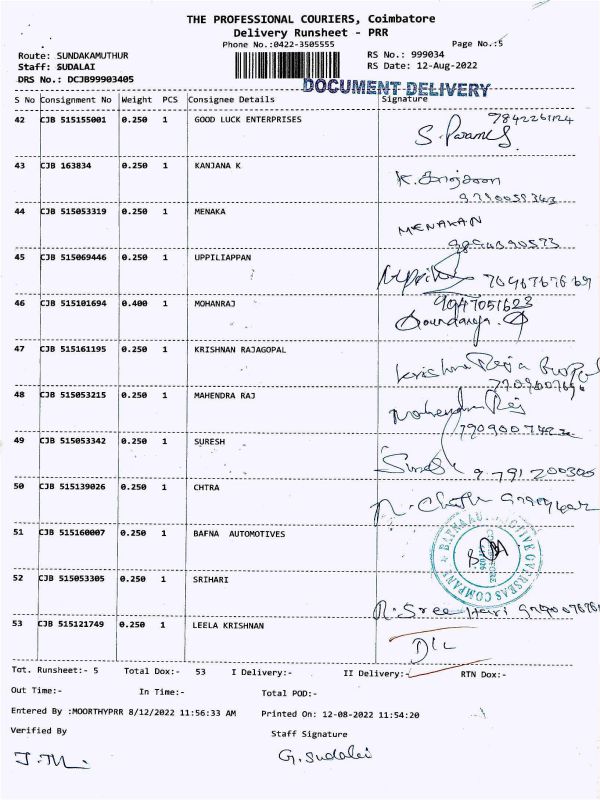 THE PROFESSIONAL COURIERS, Coimbatore
Delivery Runsheet - PRR
Phone No.:0422-3505555
Page No.:5
Route: SUNDAKAMUTHUR
RS No.: 999034
Staff: SUDALAI
RS Date: 12-Aug-2022
DRS No.: DCJB99903405
DOCUMENT DELIVERY
S No Consignment No Weight PCS Consignee Details Signature
42 CJB 515155001 0.250 1 GOOD LUCK ENTERPRISES
43 CJB 163834 0.250 1 KANJANA K
44 CJB 515053319 0.250 1 MENAKA
MENAKAN
45 CJB 515069446 0.250 1 UPPILIAPPAN
46 CJB 515101694 0.400 1 MOHANRAJ
9047051623
47 CJB 515161195 0.250 1 KRISHNAN RAJAGOPAL
Krishna Raja
48 CJB 515053215 0.250 1 MAHENDRA RAJ
Mahendra Raj
49 CJB 515053342 0.250 1 SURESH
Suresh 9791200305
50 CJB 515139026 0.250 1 CHTRA
51 CJB 515160007 0.250 1 BAFNA AUTOMOTIVES
52 CJB 515053305 0.250 1 SRIHARI
N. Sree Hari
53 CJB 515121749 0.250 1 LEELA KRISHNAN
D/L
Tot. Runsheet:- 5 Total Dox:- 53 I Delivery:- II Delivery:- RTN Dox:-
Out Time:- In Time:- Total POD:-
Entered By :MOORTHYPRR 8/12/2022 11:56:33 AM Printed On: 12-08-2022 11:54:20
Verified By Staff Signature
G. Sudalai